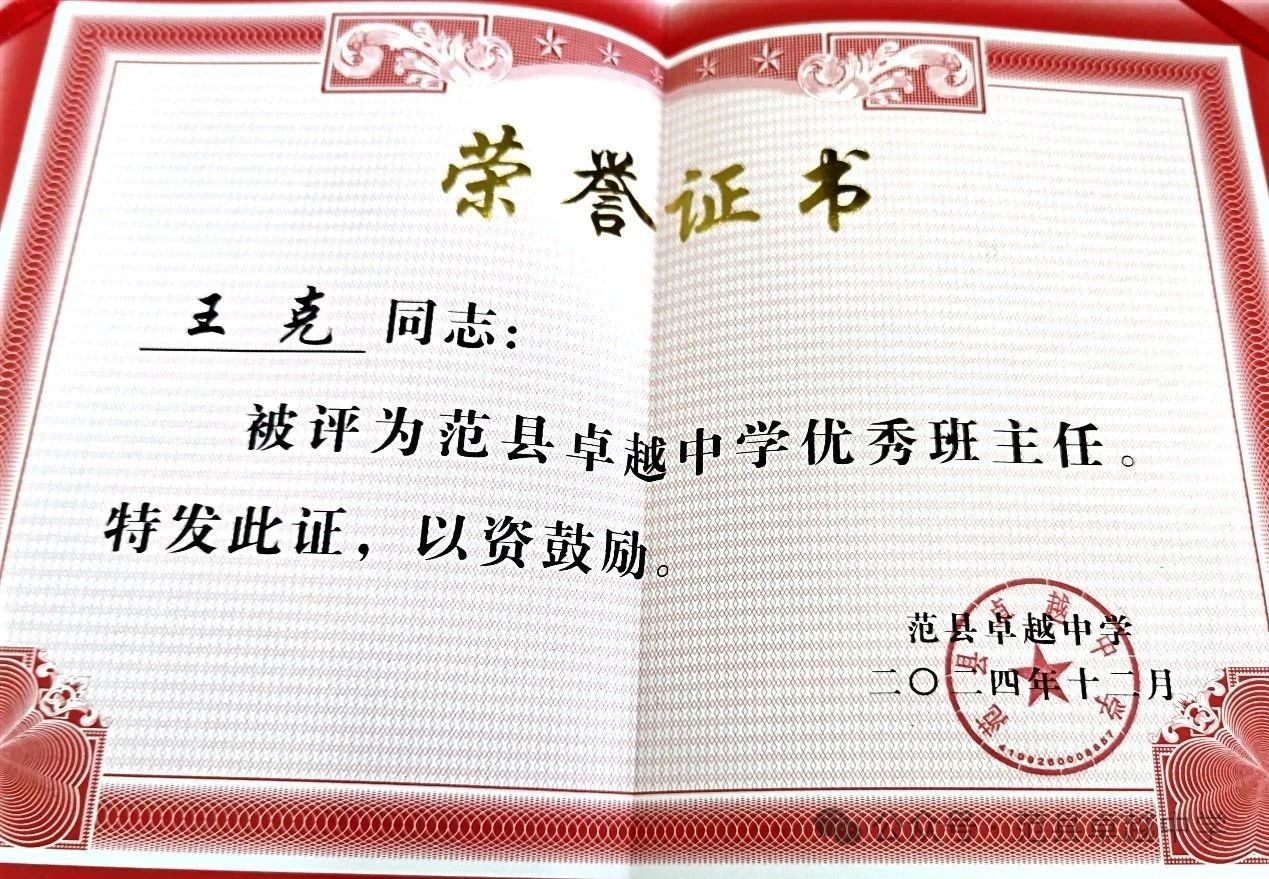 荣誉证书
王克 同志：
被评为范县卓越中学优秀班主任。
特发此证，以资鼓励。
范县卓越中学
二〇二四年十二月
范县卓越中学
公众号·范县卓越中学